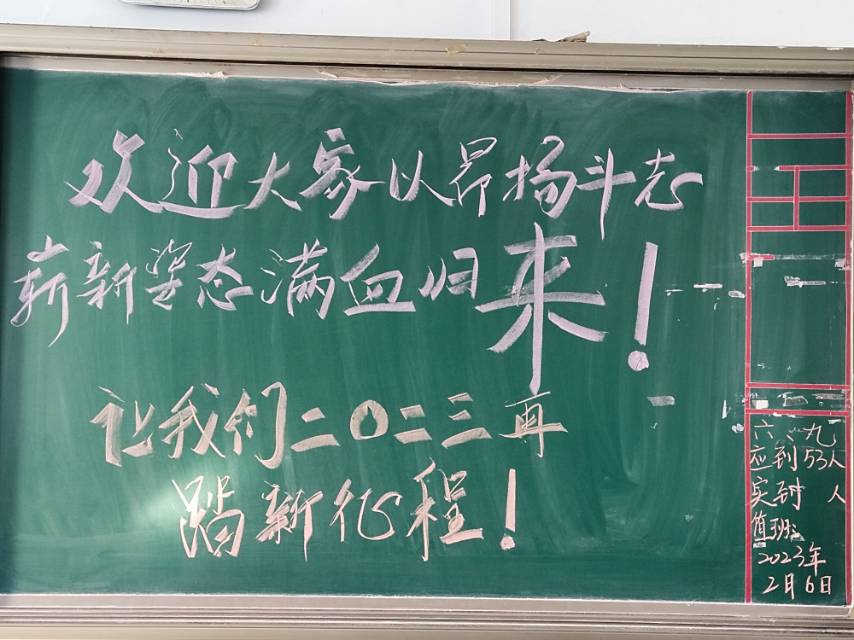 欢迎大家以昂扬斗志
崭新姿态满血归来！
让我们二〇二三再
踏新征程！
六、九
应到53人
实到 人
值班:
2023年
2月6日